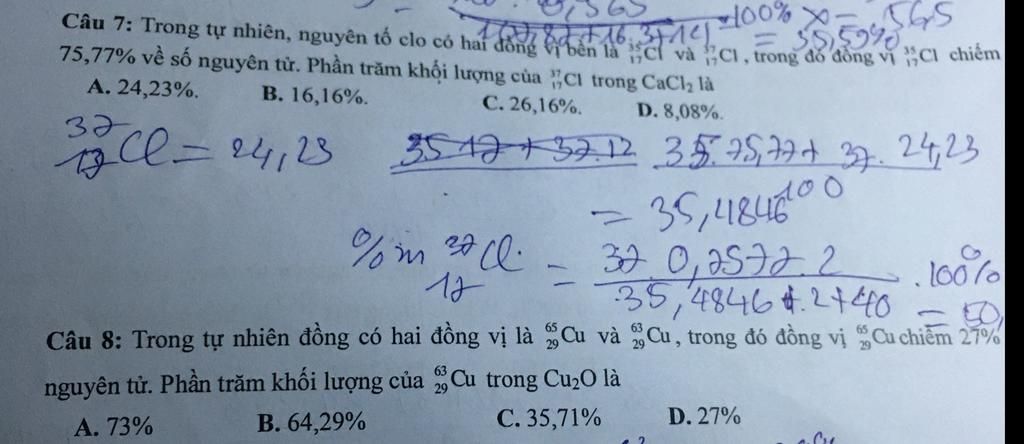 0,565
Câu 7: Trong tự nhiên, nguyên tố clo có hai đồng vị bền là ³⁵₁₇Cl và ³⁷₁₇Cl, trong đó đồng vị ³⁵₁₇Cl chiếm
100% x = 565
= 35,5940
75,77% về số nguyên tử. Phần trăm khối lượng của ³⁷₁₇Cl trong CaCl₂ là
A. 24,23%. B. 16,16%. C. 26,16%. D. 8,08%.
³⁷₁₇Cl = 24,23 35 17 + 37.17 35.75,77 + 37.24,23
100
= 35,4846
%m ³⁷₁₇Cl = 37.0,7577.2 .100%
35,4846.2+40 = 50,
Câu 8: Trong tự nhiên đồng có hai đồng vị là ⁶⁵₂₉Cu và ⁶³₂₉Cu, trong đó đồng vị ⁶⁵₂₉Cu chiếm 27%
nguyên tử. Phần trăm khối lượng của ⁶³₂₉Cu trong Cu₂O là
A. 73% B. 64,29% C. 35,71% D. 27%